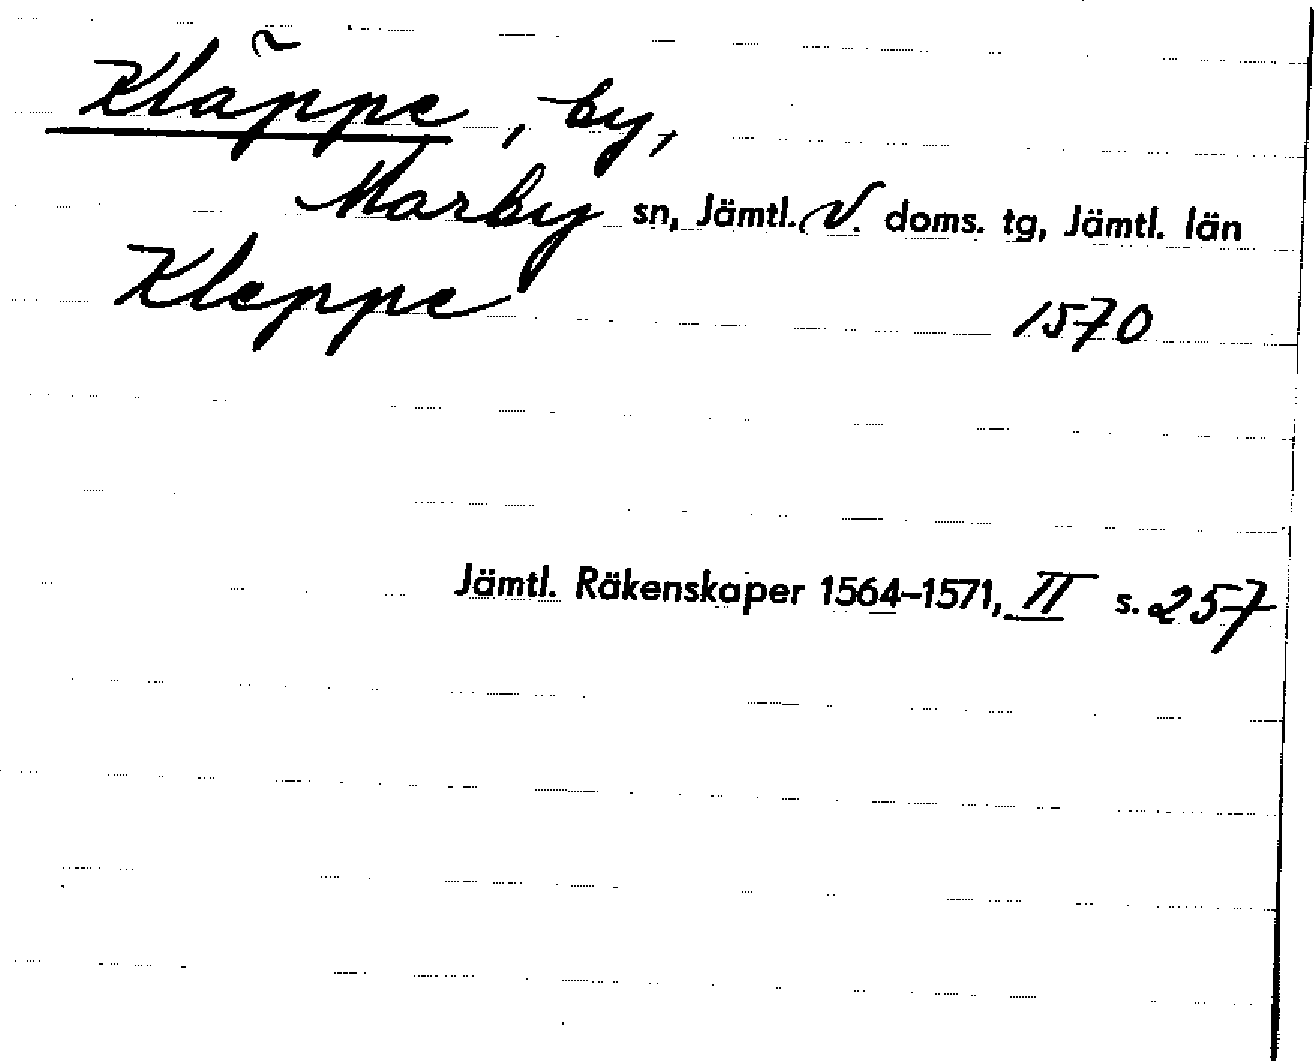 Kläppe, by,
Marby sn, Jämtl. V. doms. tg, Jämtl. län
Kleppe 1570
Jämtl. Räkenskaper 1564–1571, II s. 257